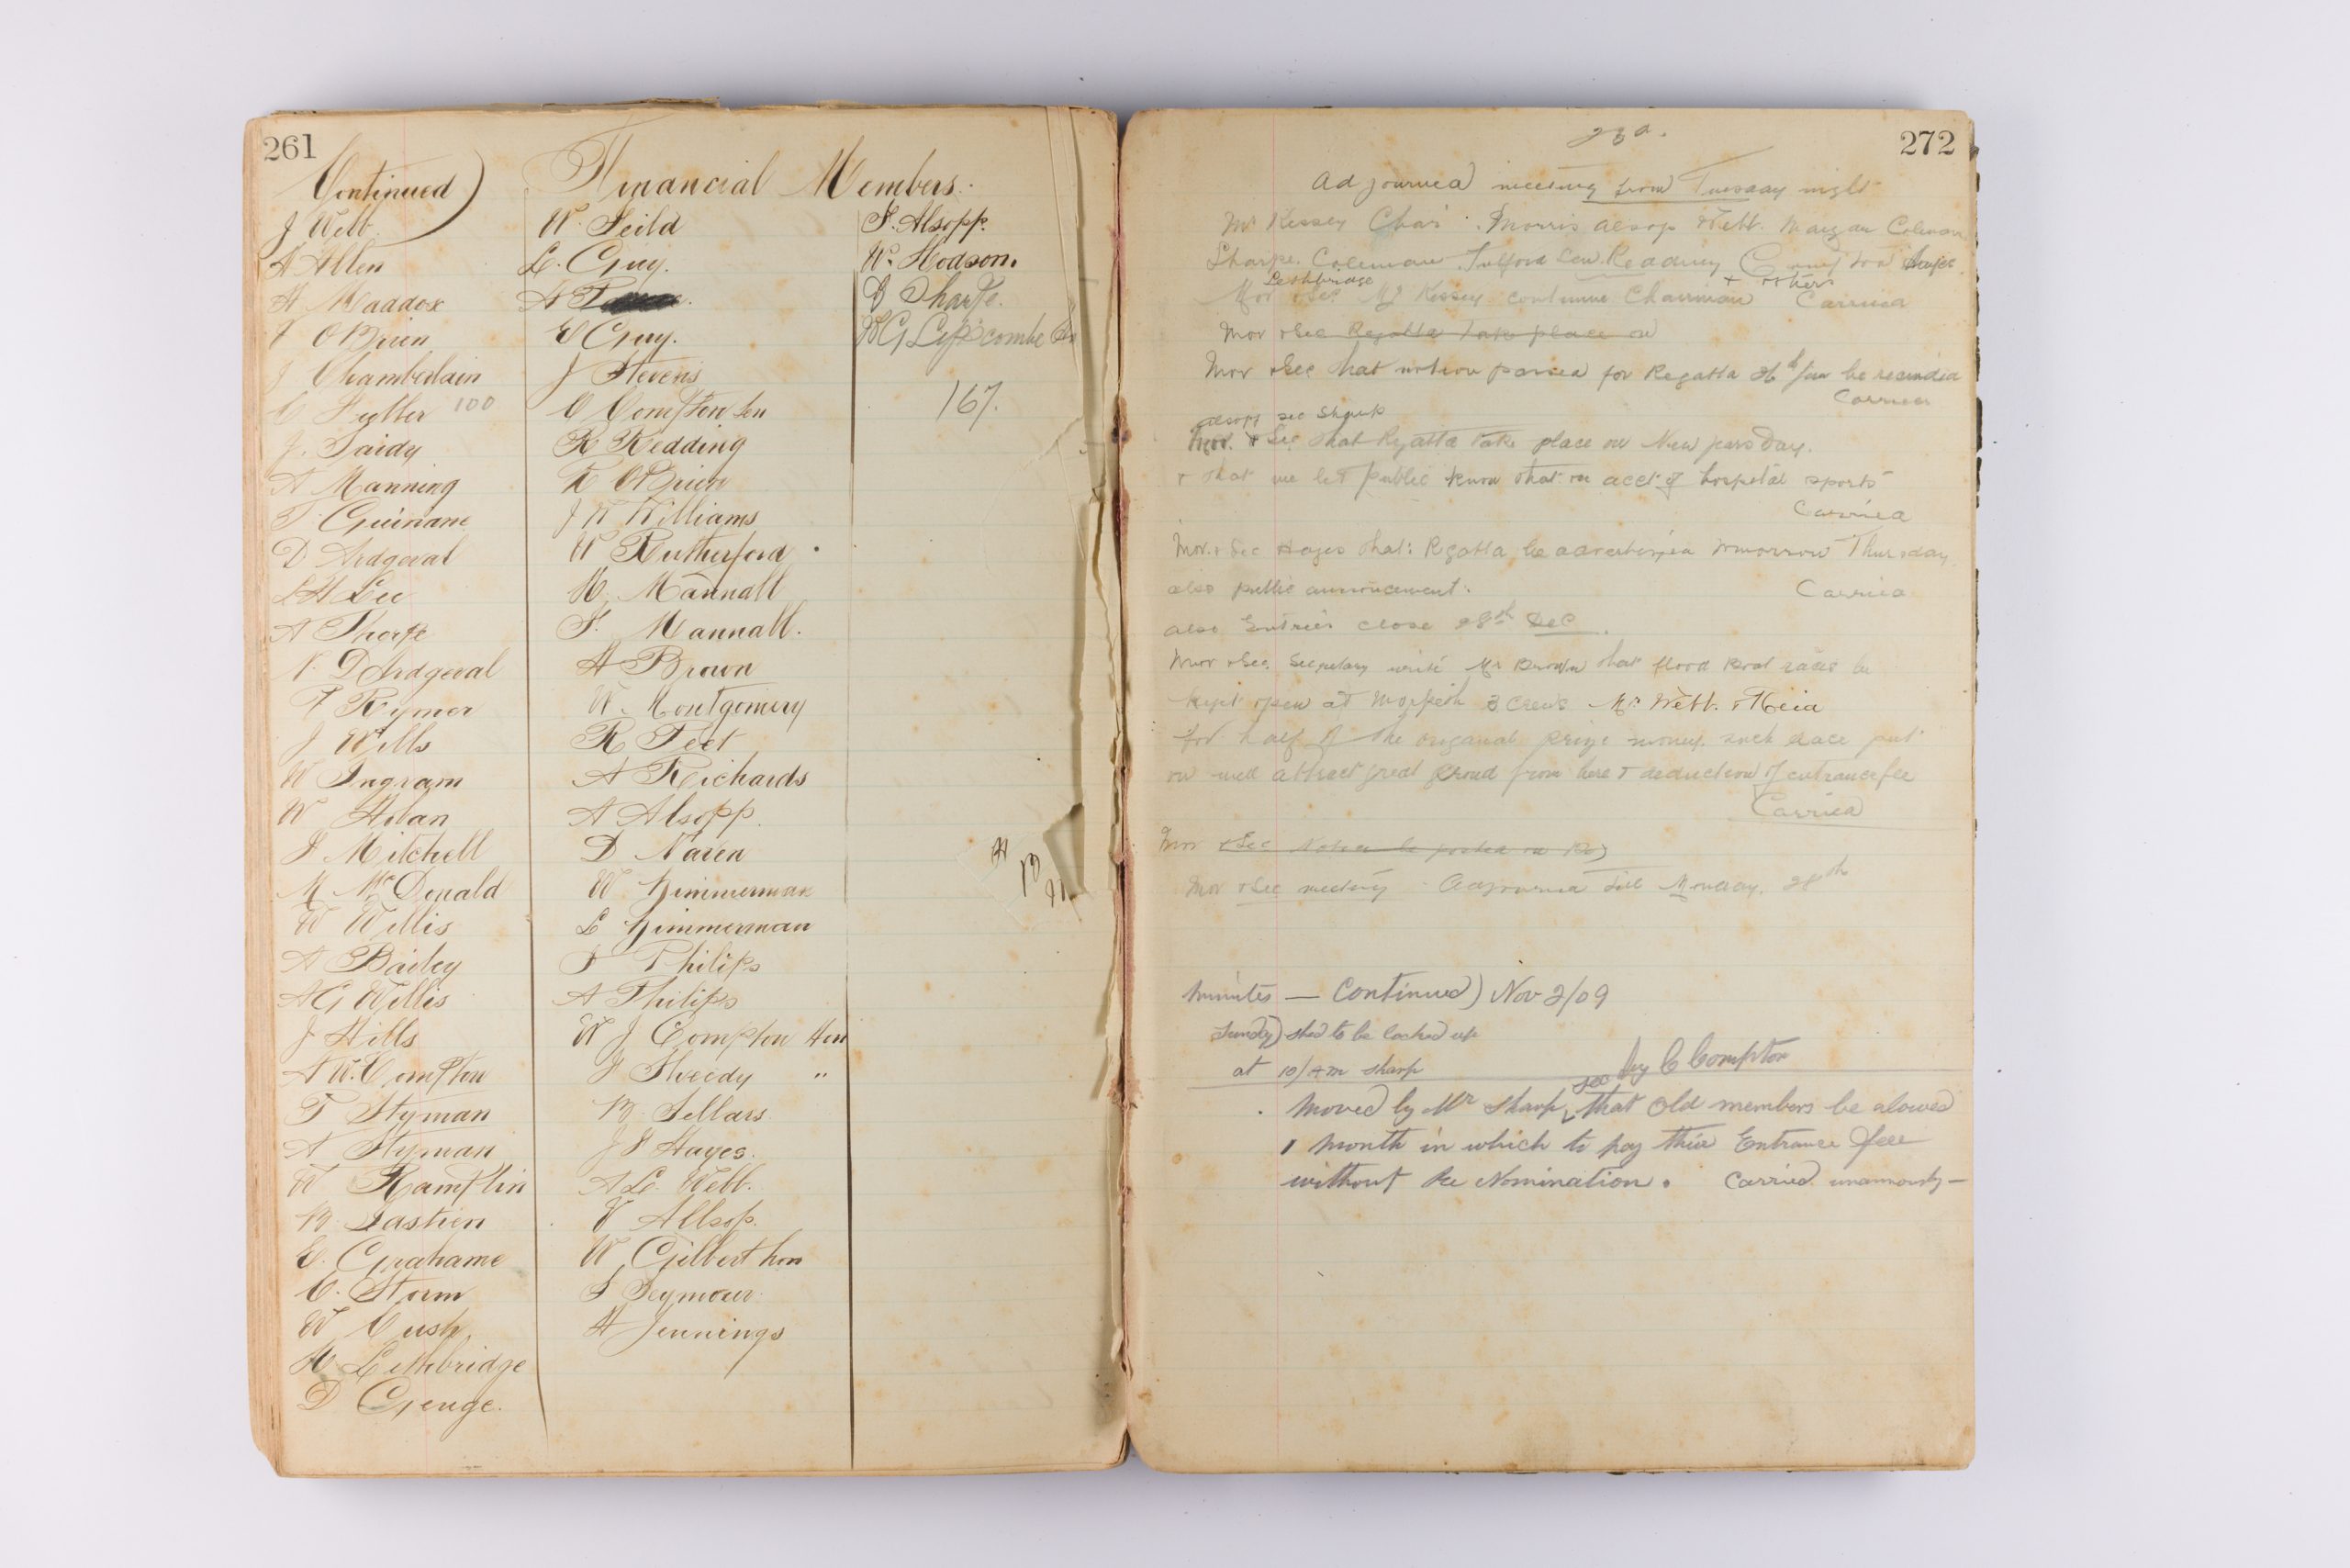 261
Continued) Financial Members.
J Webb
A Allen
H Maddox
F O'Brien
J Chamberlain
C Fuller 100
J. Saidy
A Manning
T. Guinane
D Ardgeval
L H Lee
A Thorpe
N. D'Ardgeval
F Rymer
J Wills
W Ingram
W Hoan
J Mitchell
M McDonald
W Willis
A Bailey
A G Willis
J Hills
A W. Compton
T Hyman
A Hyman
W Ramplin
B Bastien
E. Grahame
C. Storm
W Cush
H Lethbridge
D Genge.
W. Feild
L. Guy.
A
E Guy.
J Stevens
C Compton Sen
R Redding
R O'Brien
J W Williams
W Rutherford
H. Mannall
F. Mannall.
A Brown
W. Montgomery
R Peet
A Richards
A Alsopp.
D Naven
W Zimmerman
L Zimmerman
J Philips
A Philips
W J Compton Hon
J Sheedy "
B. Sellars
J P Hayes.
A L. Webb.
V Allsop.
W Gilbert hon
S Seymour.
H Jennings
F. Alsopp.
W. Hodson.
D Sharpe.
W G Lipscombe
167.
272
23a.
Adjourned meeting from Tuesday night
Mr Kessey Chair. Morris Alsop Webb. Morgan Coleman
Sharpe. Coleman Fulford Readiny
Lethbridge + others
Mov + Sec Mr Kessey continue Chairman Carried
Mov + Sec Regatta take place on
Mov + Sec that motion passed for Regatta 26th Jan be rescinded
Carried
Alsopp sec Sharpe
Mov. + Sec that Regatta take place on New years Day.
+ that we let public know that on acct of hospital sports
Carried
Mov. + Sec Hages that: Regatta be advertised tomorrow Thursday
also public announcement. Carried
also Entries close 28th Dec.
Mov + Sec. Secretary write Mr Brown that flood Boat races be
kept open at Morpeth 3 crews Mr Webb. + Reid
for half of the original prize money. such race put
on will attract great crowd from here + deduction of entrance fee
Carried
Mov + Sec Notice be posted on
Mov + Sec meeting Adjourned till Monday. 28th
Minutes — Continued) Nov 2/09
Sunday) shed to be locked up
at 10/AM sharp
sec by C Compton
Moved by Mr Sharp, that Old members be alowed
1 month in which to pay thier Entrance fee
without Re Nomination. Carried unanimously —